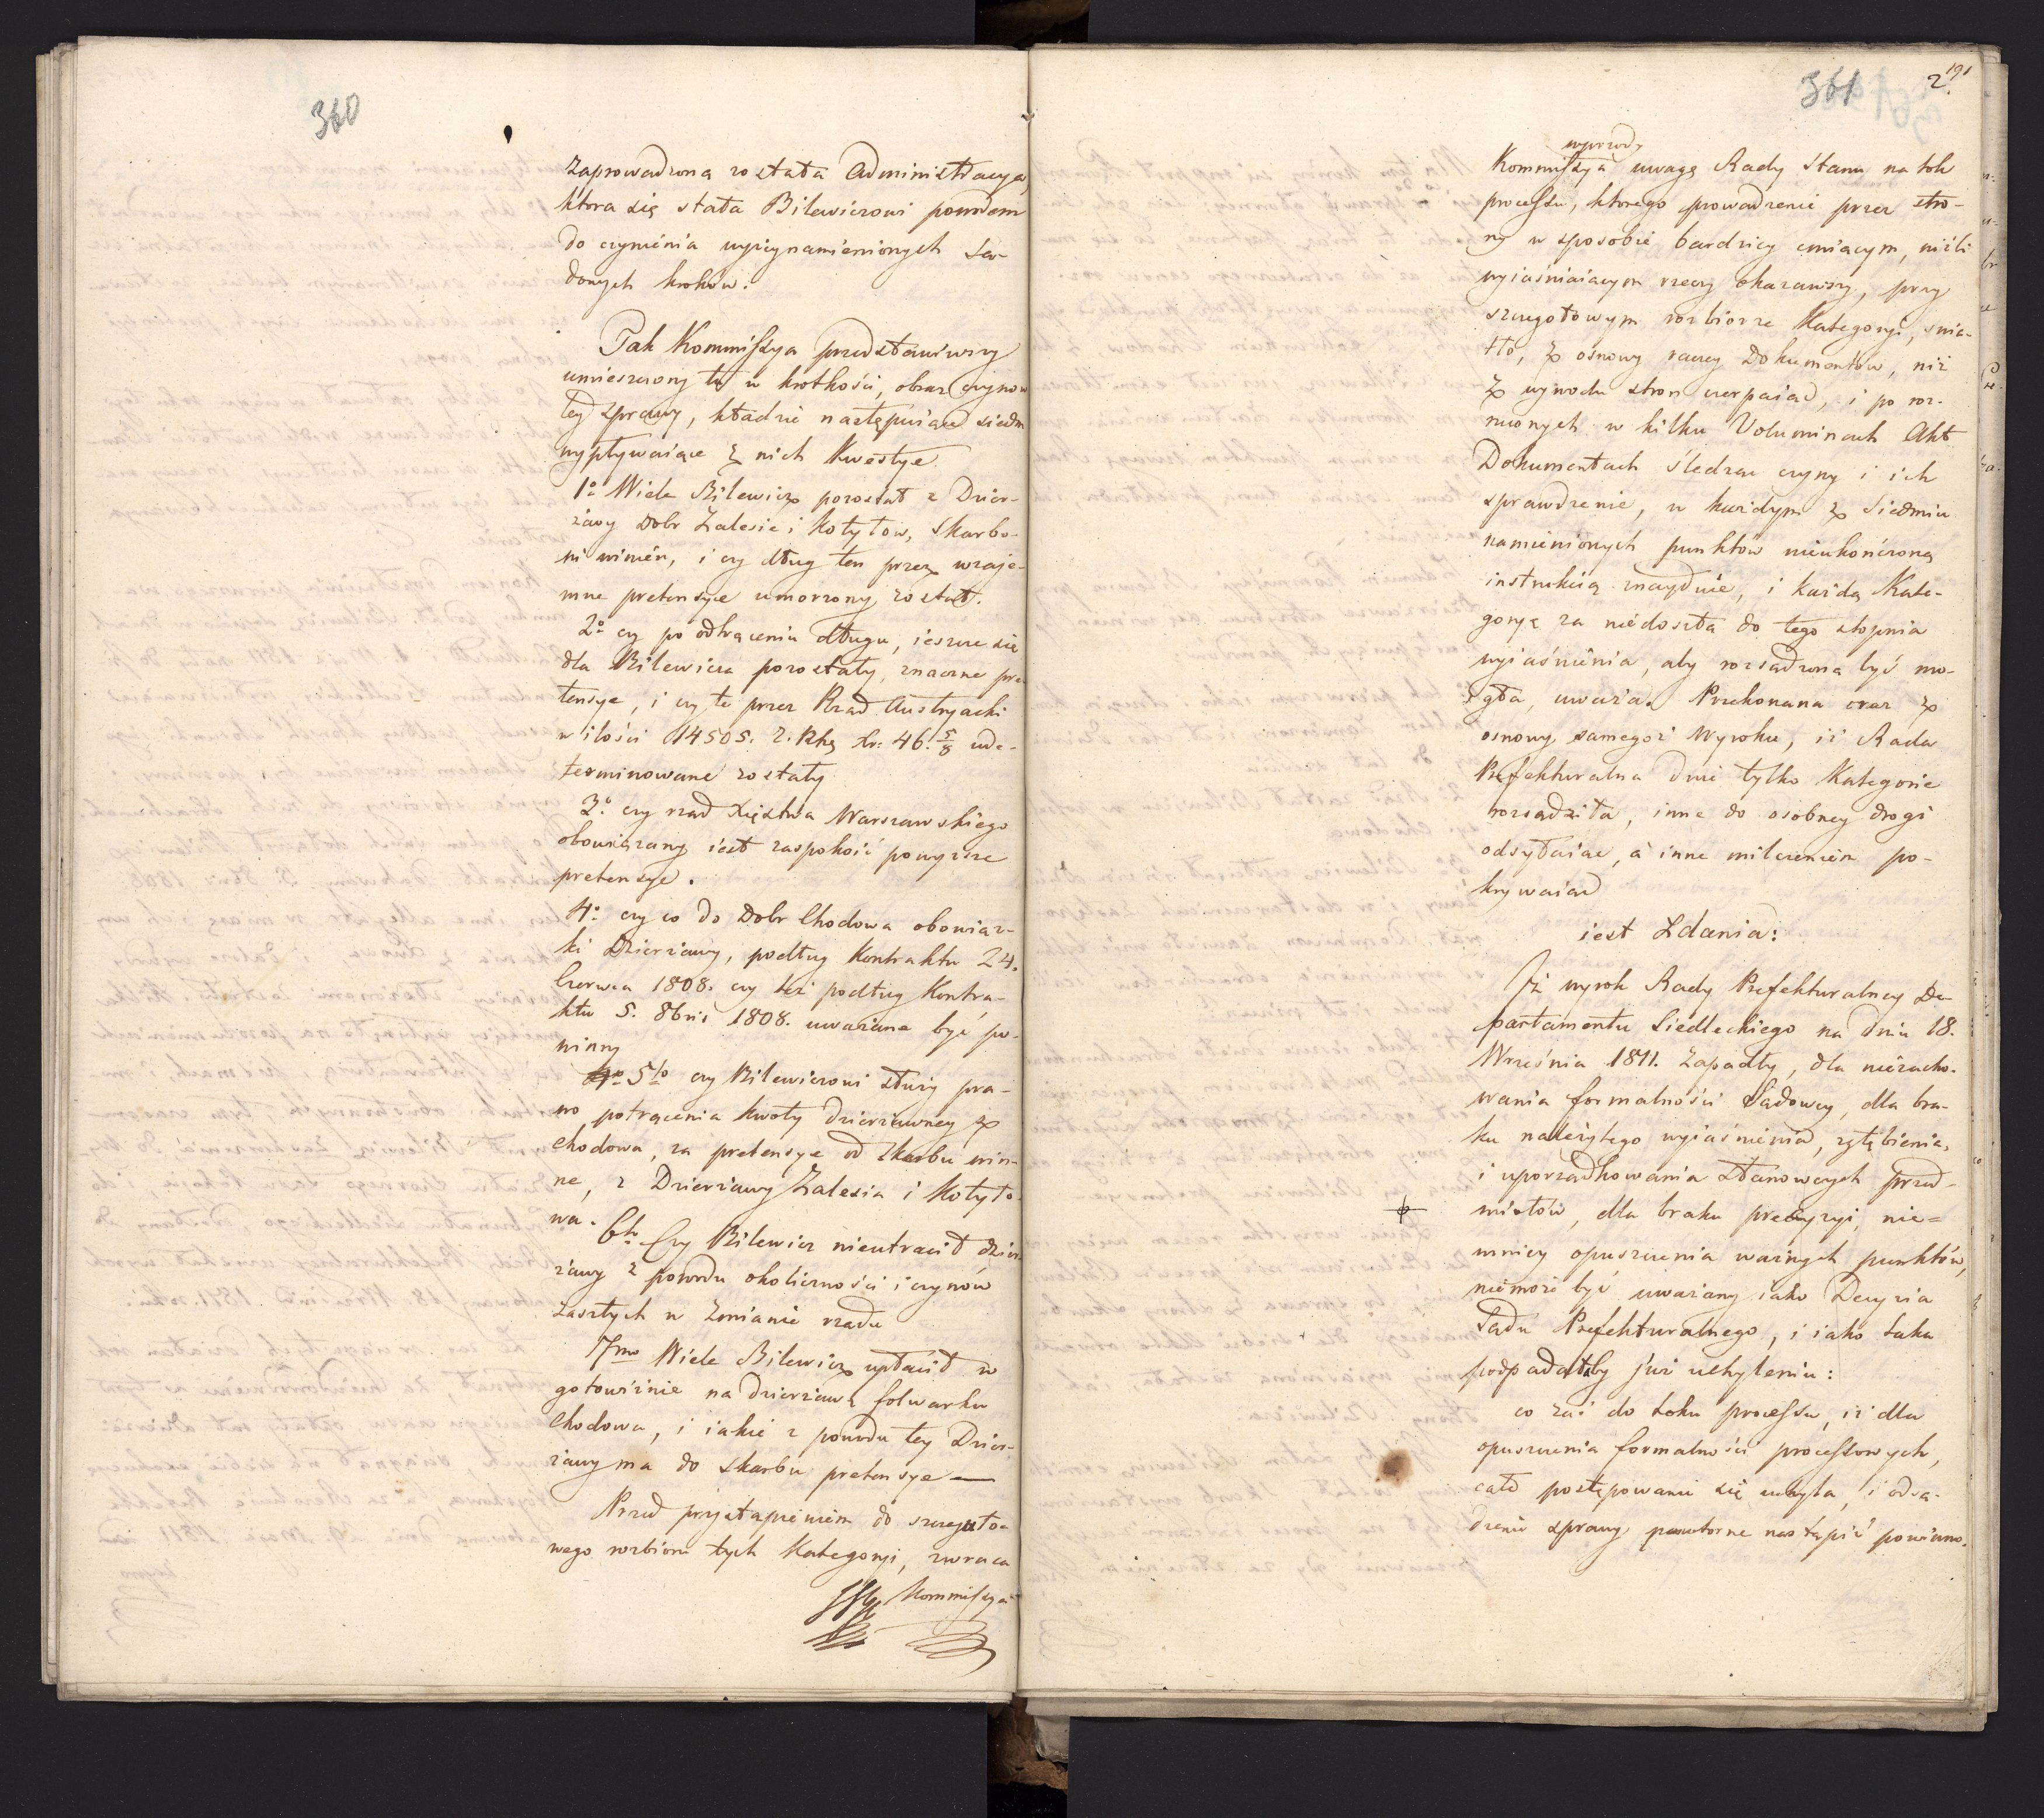 360
zaprowadzona została Administracya,
ktora się stała Bilewiczowi powodem
do czynienia wyżeynamienionych Są-
dowych krokow.
Tak Kommissya przedstawiwszy
umieszczony tu w krotkości, obraz czynow
tey sprawy, kładzie następuiące siedm
wypływaiące z nich Kwestye.
1o Wiele Bilewicz pozostał z Dzier-
żawy Dobr Zalesie i Kotyłow, Skarbo-
wi winien, i czy dług ten przez wzaje-
mne pretensye umorzony został.
2o czy po odtrąceniu długu, ieszcze się
dla Bilewicza pozostały, znaczne pre-
tensye, i czy te przez Rząd Austryacki
w ilości 14505. Z. Rhs Xr: 46. 5/8 ude-
terminowane zostały
3o czy rząd Xięstwa Warszawskiego
obowiązany iest zaspokoić powyższe
pretensye.
4o czy co do Dobr Chodowa obowiąz-
ki Dzierżawy, podług Kontraktu 24.
Czerwca 1808. czy też podług Kontra-
ktu 5. 8bris 1808. uważane być po-
winny
5to czy Bilewiczowi służy pra-
wo potrącenia kwoty dzierżawney z
Chodowa, za pretensye od Skarbu win-
ne, z Dzierżawy Zalesia i Kotyło-
wa.
6to Czy Bilewicz nieutracił dzier-
żawy z powodu okoliczności i czynów
zaszłych w zmianie rządu
7mo Wiele Bilewicz upłacił w
gotowiźnie na dzierżawę folwarku
Chodowa, i iakie z powodu tey Dzier-
żawy ma do Skarbu pretensye —
Przed przystąpieniem do szczegóło-
wego rozbioru tych Kategoryi, zwraca
Kommissya
361
191
2.
wprzody
Kommissya uwagę Rady Stanu na tok
processu, ktorego prowadzenie przez stro-
ny w sposobie bardziey cmiącym, niżli
wyiaśniaiącym rzeczy okazawszy, przy
szczegołowym rozbiorze Kategoryi, swia-
tło, z osnowy raczey Dokumentów, niż
z wywodu stron czerpaiąc, i po roz-
rzuconych w kilku Voluminach Akt
Dokumentach śledząc czyny i ich
sprawdzenie, w każdym z Siedmiu
namienionych punktów nieukończoną
instrukcią znayduie, i każdą Kate-
goryę za niedoszłą do tego stopnia
wyiaśnienia, aby rozsądzona być mo-
gła, uważa. Przekonana oraz z
osnowy samegoż Wyroku, iż Rada
Prefekturalna dwie tylko Kategorie
rozsądziła, inne do osobney drogi
odsyłaiąc, a inne milczeniem po-
krywaiąc
iest Zdania:
Iż wyrok Rady Prefekturalney De-
partamentu Siedleckiego na dniu 18.
Września 1811. zapadły, dla niezacho-
wania formalności Sądowey, dla bra-
ku należytego wyiaśnienia, zgłębienia,
i uporządkowania stanowczych przed-
miotów, dla braku precyzyi, nie=
mniey opuszczenia ważnych punktów,
niemoże być uważany iako Decyzia
Sądu Prefekturalnego, i iako taka
podpadałby już uchyleniu:
co zaś do toku processu, iż dla
opuszczenia formalności processowych,
całe postępowanie się uchyla, i odsą-
dzenie sprawy powtorne nastąpić powinno.